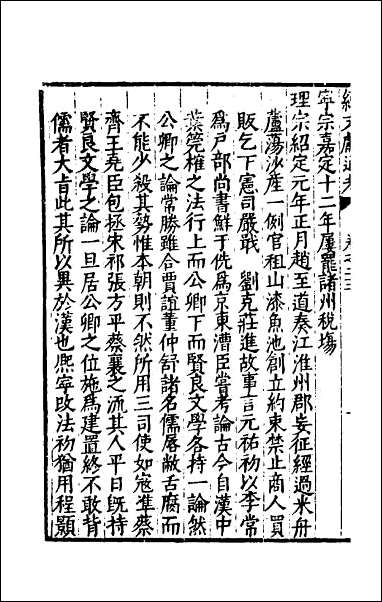 續文獻通考
寧宗嘉定十二年屢罷諸州稅場
理宗紹定元年正月趙至道奏江淮州郡妄征經過米舟
蘆蕩沙產一例官租山漆魚池創立約束禁止商人買
販乞下憲司嚴戢 劉克莊進故事言元祐初以李常
爲戶部尚書鮮于侁爲京東漕臣嘗考論古今自漢中
葉筦榷之法行上而公卿下而賢良文學各持一論然
公卿之論常勝雖合賈誼董仲舒諸名儒脣敝舌腐而
不能少殺其勢惟本朝則不然所用三司使如寇準蔡
齊王堯臣包拯宋祁張方平蔡襄之流其人平日既持
賢良文學之論一旦居公卿之位施爲建置終不敢背
儒者大旨此其所以異於漢也熙寧改法初猶用程顥